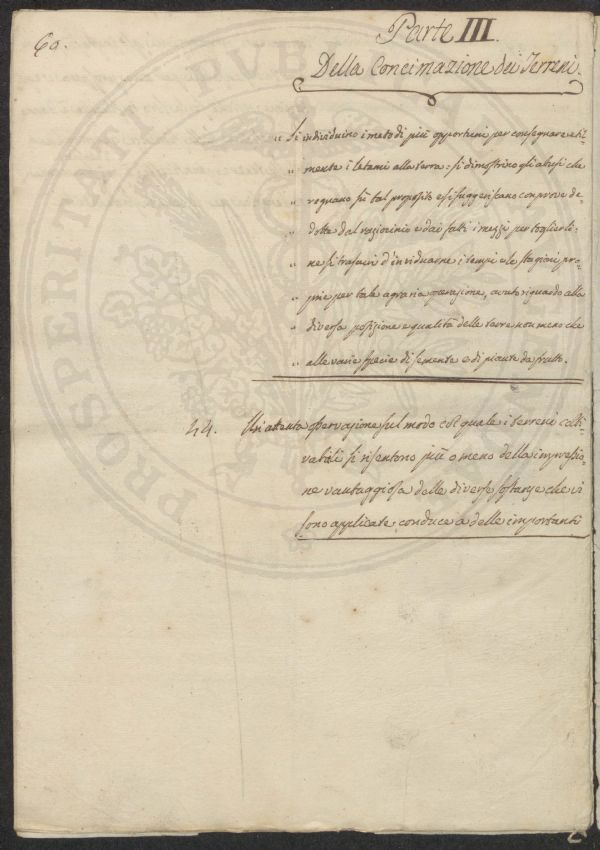 60.
Parte III.
Della Concimazione dei Terreni.
" Si individuino i metodi più opportuni per consegnare uti-
" mente i letami alla terra: si dimostrino gli abusi che
" regnano sù tal proposito e si suggeriscano con prove de-
" dotte dal raziocinio e dai fatti i mezzi per toglierli:
" ne si trascuri d'inviduarne i tempi e le stagioni pro-
" prie per tale agraria operazione, avuto riguardo alla
" diversa posizione e qualità delle terre non meno che
" alle varie specie di semente e di piante da frutto.
44. Un'attenta osservazione sul modo col quale i terreni colti-
vabili si risentono più o meno della impressio-
ne vantaggiosa delle diverse sostanze che vi
sono applicate, conduce a delle importanti
PROSPERITATI PUBLICAE